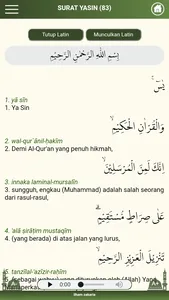 SURAT YASIN (83)
Tutup Latin
Munculkan Latin
بِسْمِ اللَّهِ الرَّحْمَنِ الرَّحِيْمِ
يٰسۤ ۚ
1. yā sīn
1. Ya Sin
وَالْقُرْاٰنِ الْحَكِيْمِۙ
2. wal-qur`ānil-ḥakīm
2. Demi Al-Qur'an yang penuh hikmah,
اِنَّكَ لَمِنَ الْمُرْسَلِيْنَۙ
3. innaka laminal-mursalīn
3. sungguh, engkau (Muhammad) adalah salah seorang
dari rasul-rasul,
عَلٰى صِرَاطٍ مُّسْتَقِيْمٍۗ
4. 'alā ṣirāṭim mustaqīm
4. (yang berada) di atas jalan yang lurus,
تَنْزِيْلَ الْعَزِيْزِ الرَّحِيْمِۙ
5. tanzīlal-'azīzir-raḥīm
0:00